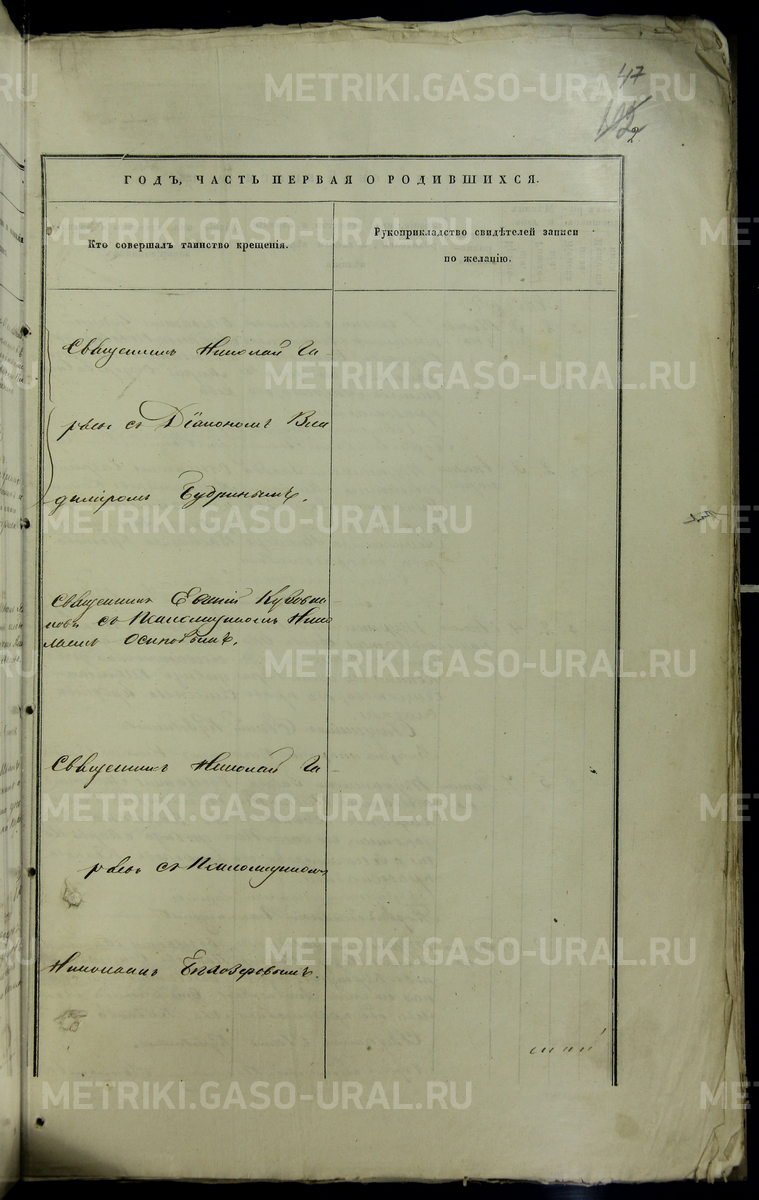 47
ГОДЪ, ЧАСТЬ ПЕРВАЯ О РОДИВШИХСЯ.
Кто совершалъ таинство крещенія.
Рукоприкладство свидѣтелей записи
по желанію.
Священникъ Николай
съ Діакономъ Вла
диміромъ Будринымъ.
Священникъ Евгеній
съ Псаломщикомъ Нико
лаемъ Осиповымъ.
Священникъ Николай
съ Псаломщикомъ
Николаемъ Бѣлозеровымъ.
METRIKI.GASO-URAL.RU